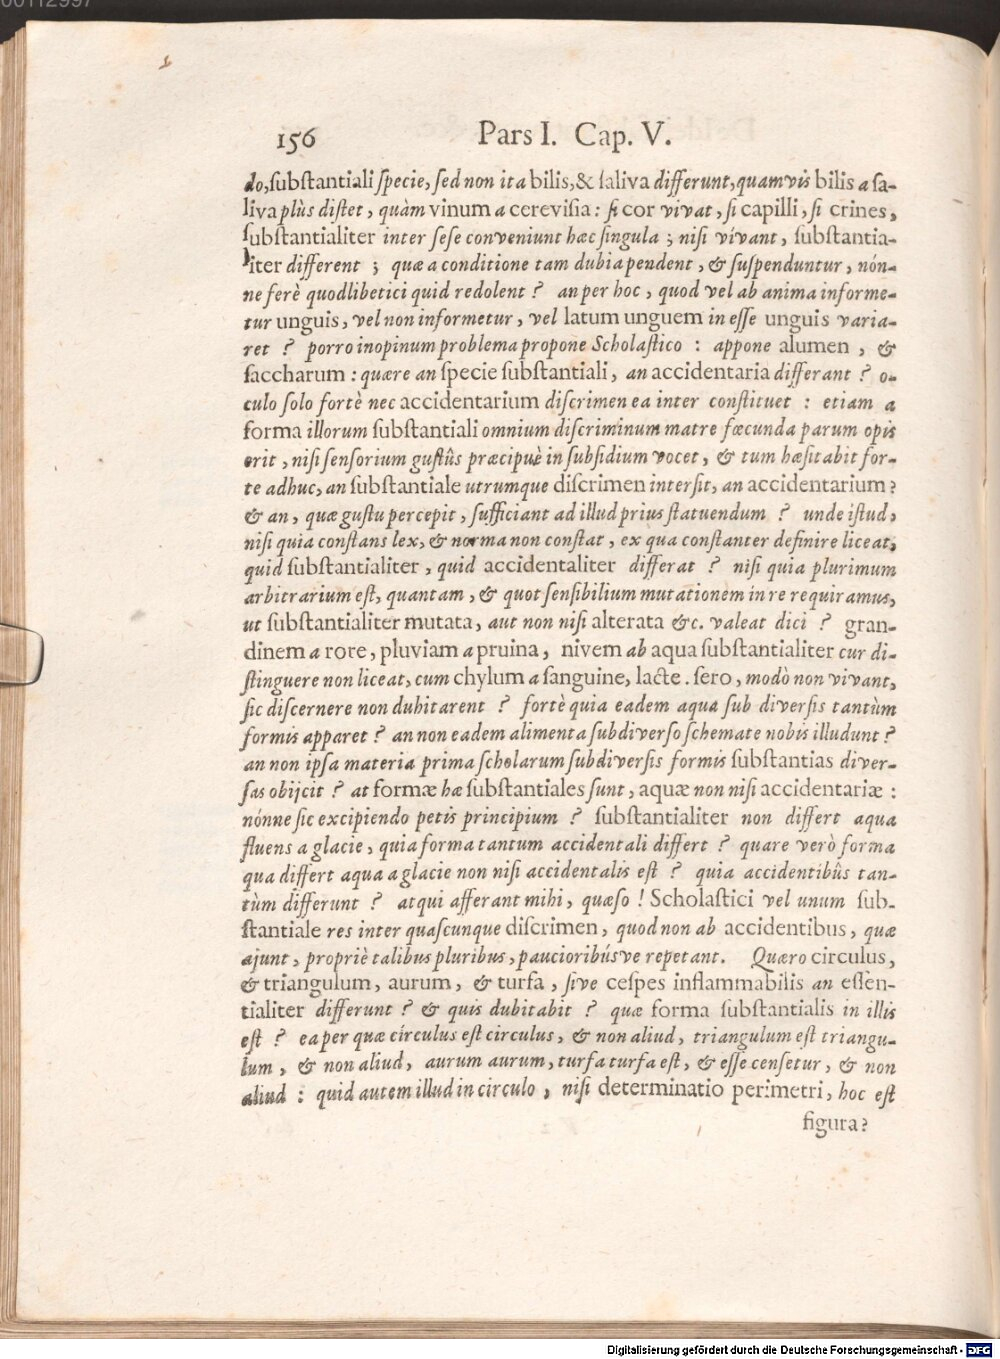 00112997
156 Pars I. Cap. V.
do, substantiali specie, sed non ita bilis, & saliva differunt, quamvis bilis a sa-
liva plùs distet, quàm vinum a cerevisia: si cor vivat, si capilli, si crines,
substantialiter inter sese conveniunt hæc singula; nisi vívant, substantia-
liter different; quæ a conditione tam dubia pendent, & suspenduntur, nón-
ne ferè quodlibetici quid redolent? an per hoc, quod vel ab anima informe-
tur unguis, vel non informetur, vel latum unguem in esse unguis varia-
ret? porro inopinum problema propone Scholastico: appone alumen, &
saccharum: quære an specie substantiali, an accidentaria differant? o-
culo solo fortè nec accidentarium discrimen ea inter constituet: etiam a
forma illorum substantiali omnium discriminum matre fœcunda parum opis
erit, nisi sensorium gustûs præcipuè in subsidium vocet, & tum hæsitabit for-
te adhuc, an substantiale utrumque discrimen intersit, an accidentarium?
& an, quæ gustu percepit, sufficiant ad illud prius statuendum? unde istud,
nisi quia constans lex, & norma non constat, ex qua constanter definire liceat,
quid substantialiter, quid accidentaliter differat? nisi quia plurimum
arbitrarium est, quantam, & quot sensibilium mutationem in re requiramus,
ut substantialiter mutata, aut non nisi alterata &c. valeat dici? gran-
dinem a rore, pluviam a pruina, nivem ab aqua substantialiter cur di-
stinguere non liceat, cum chylum a sanguine, lacte. sero, modò non vivant,
sic discernere non dubitarent? fortè quia eadem aqua sub diversis tantùm
formis apparet? an non eadem alimenta sub diverso schemate nobis illudunt?
an non ipsa materia prima scholarum sub diversis formis substantias diver-
sas obijcit? at formæ hæ substantiales sunt, aquæ non nisi accidentariæ:
nónne sic excipiendo petis principium? substantialiter non differt aqua
fluens a glacie, quia forma tantum accidentali differt? quare verò forma
qua differt aqua a glacie non nisi accidentalis est? quia accidentibûs tan-
tùm differunt? atqui afferant mihi, quæso! Scholastici vel unum sub-
stantiale res inter quascunque discrimen, quod non ab accidentibus, quæ
ajunt, propriè talibus pluribus, paucioribúsve repetant. Quæro circulus,
& triangulum, aurum, & turfa, sive cespes inflammabilis an essen-
tialiter differunt? & quis dubitabit? quæ forma substantialis in illis
est? ea per quæ círculus est circulus, & non aliud, triangulum est triangu-
lum, & non aliud, aurum aurum, turfa turfa est, & esse censetur, & non
aliud: quid autem illud in circulo, nisi determinatio perimetri, hoc est
figura?
Digitalisierung gefördert durch die Deutsche Forschungsgemeinschaft - DFG